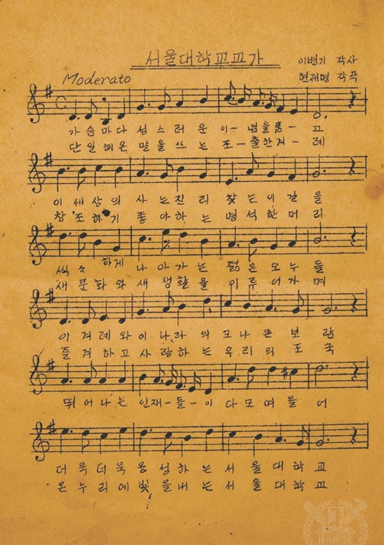 서울대학교교가
이병기 작사
Moderato
현제명 작곡
가슴마다 성스러운 이-념을품-고
단일 쓰는 조-촐한겨-레
이 세상의 사는진리 찾는 이 길을
창조하기 좋아하는 명석한머리
씩씩하게 나아가는 젊은 오누들
새 문화와 새 생활을 이루어가며
이 겨레와이나라의 크나큰 보람
즐겨하고사랑하는 우리의 조국
뛰어나는 인재-들-이 다 모여들어
더욱더욱 융성하는 서울대학교
온누리에빛을내는 서울대학교